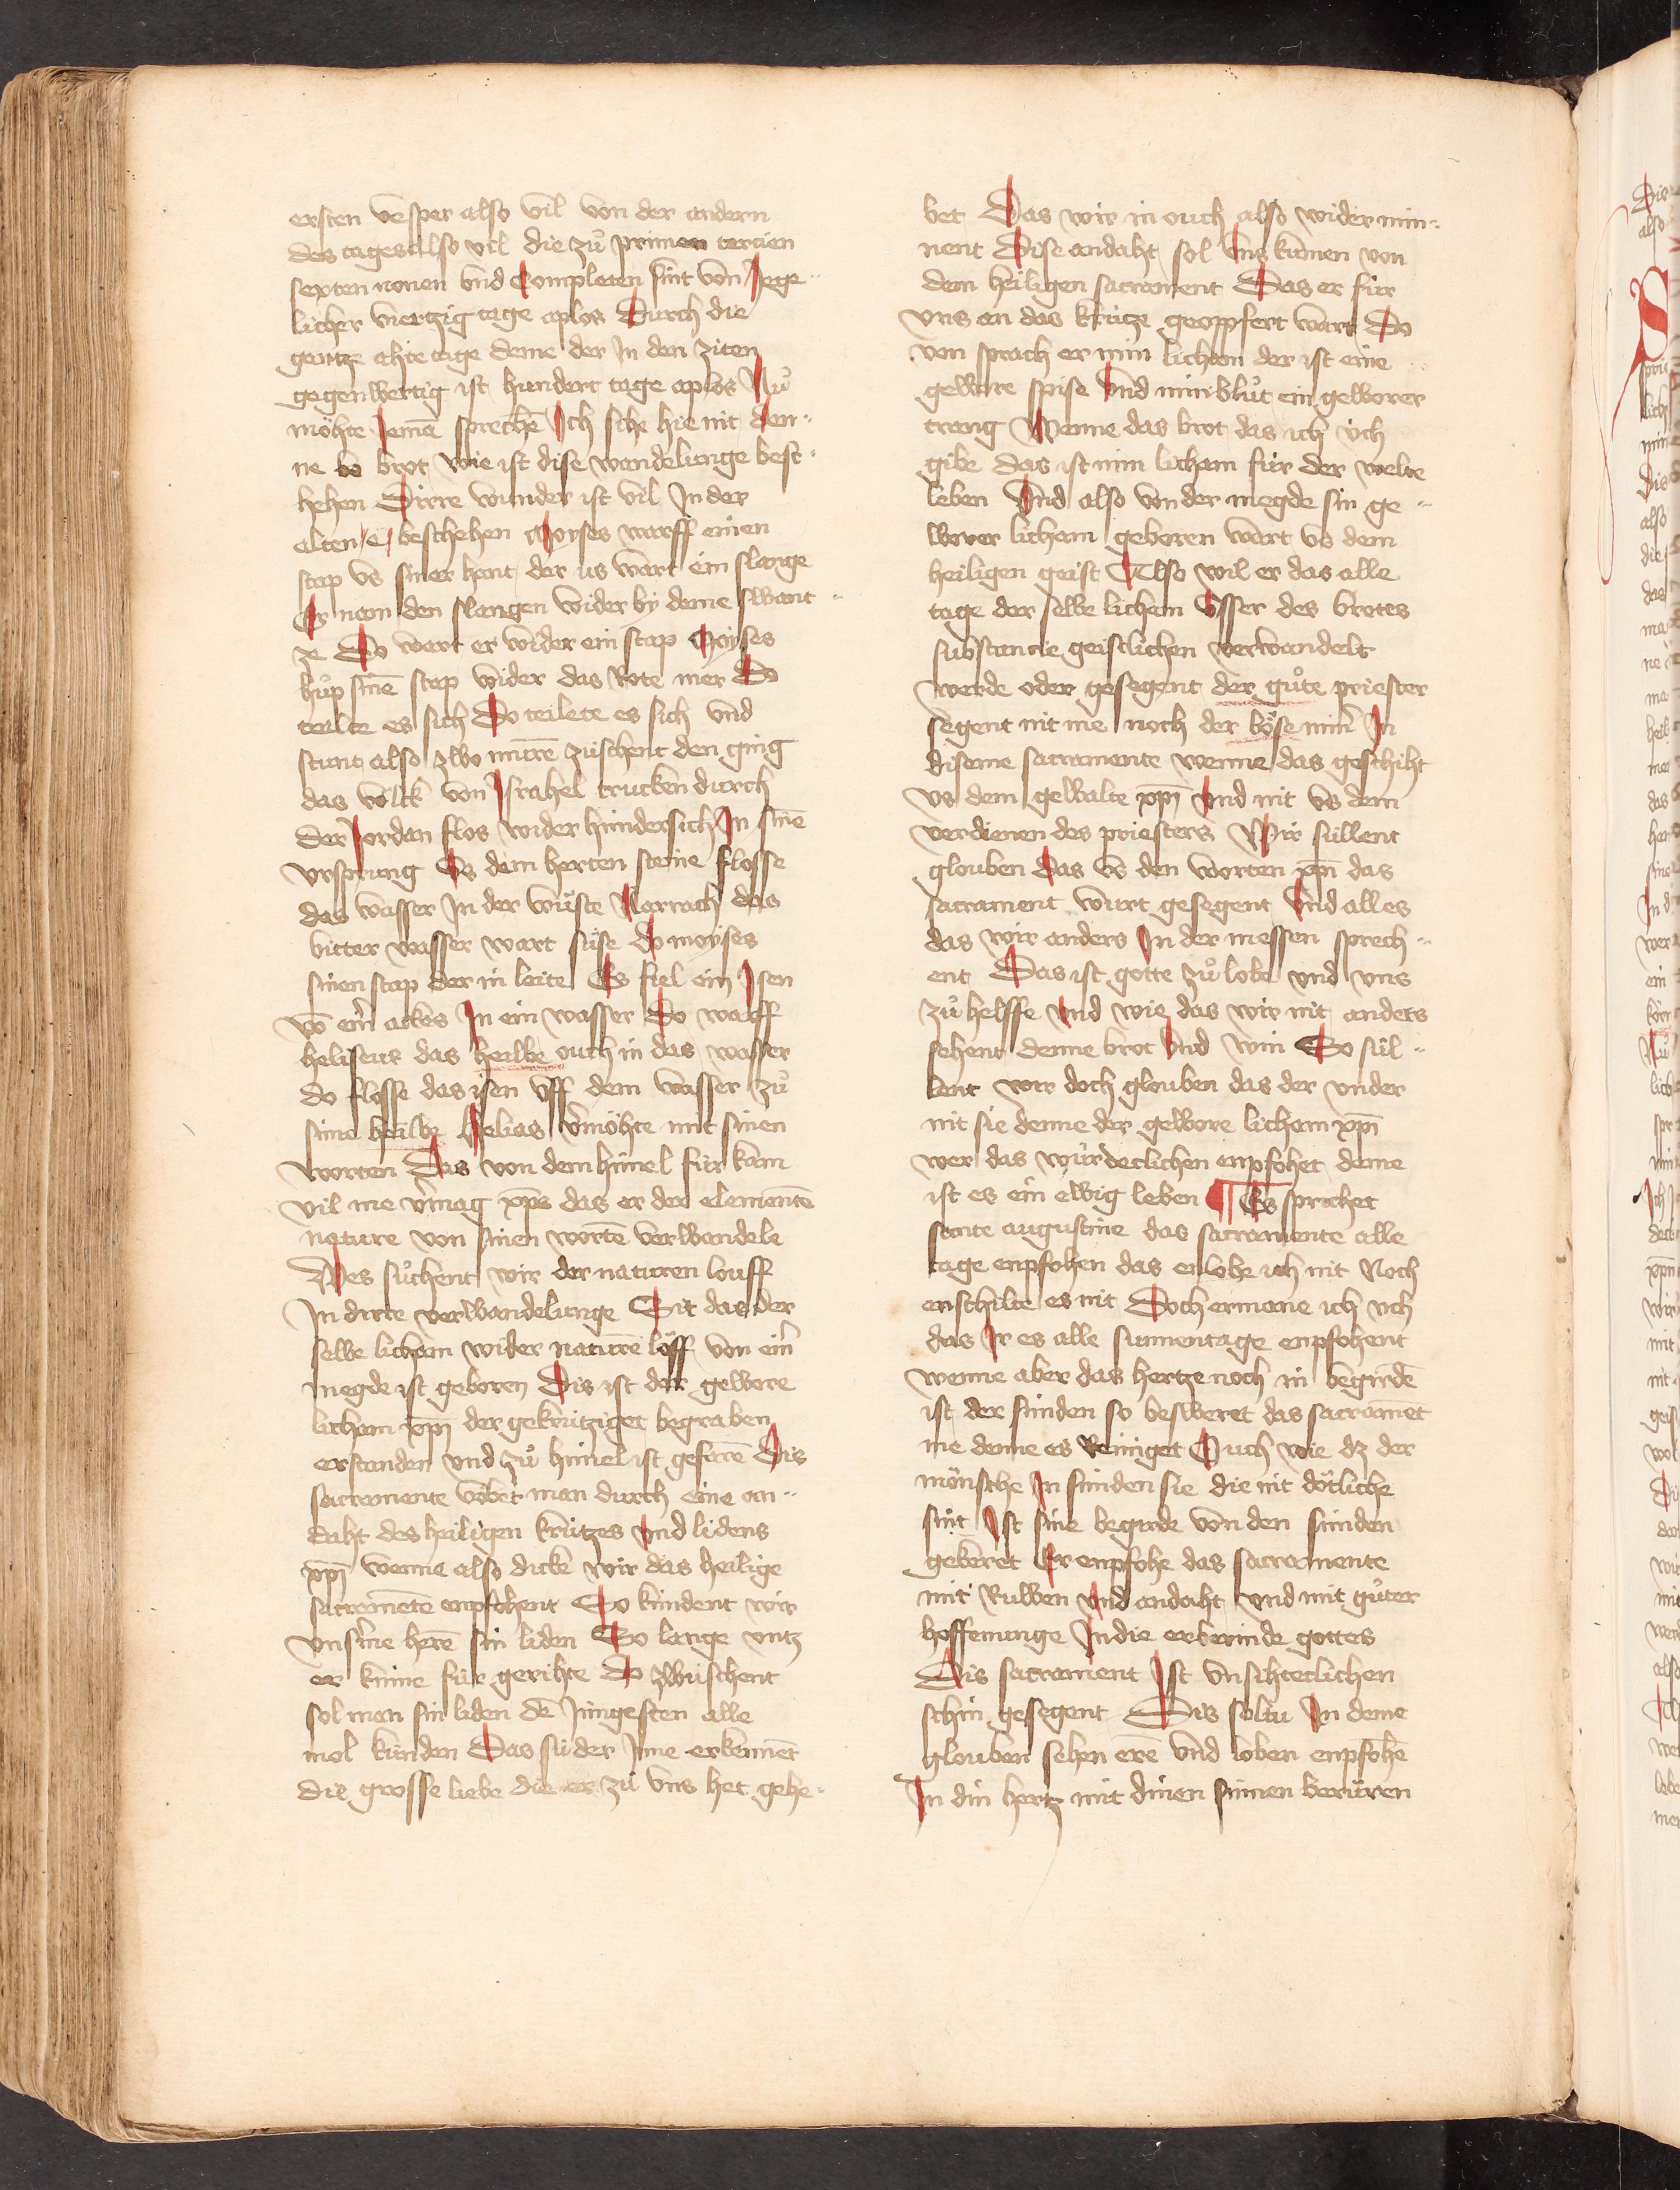 ersten vesper also vil von der andern
des tages also vil die zů primen tercien
sexten nonen vnd Completen sint von Jege¨
licher viertzig tage aplos Durch die
gantze ahte tage deme der In den ziten
gegenwertig ist hundert tage aplos Nů
möhte Jemā sprechē Ich sihe hie nit den¨
ne brot wie ist dise wandelunge besc¨
hehen Dirre wunder ist vil In der
alten e beschehen Moyses warff einen
stap vs siner hant dar us wart ein slange
Er nam den slangen wider by deme swant¨
ze Do wart er wider ein stap Moyses
hůp sinē stap wider das Rote mer Do
teilte es sich Do teilete es sich vnd
stunt also zwo murē zuschent den ging
das volck von Israhel trucken durch
Der Jordan flos wider hindersich In sinē
vrsprung Vs dem herten steine flosse
das wasser In der wuͤste Marrach das
bitter wasser wart suͤse do moyses
sinen stap der in leite Es fiel ein Isen
vō eīr ackes In ein wasser Do warff
heliseus das heilbe ouch in das wasser
do flosse das isen vff dem wasser zů
sime heilbe Helias v̄möhte mit sinen
worten Das von dem himel für kam
vil me v̄mag xp̄s das er der elementē
nature von sinen wortē verwandele
Wes suͤchent wir der naturen louff
In dirre verwandelunge Sit das der
selbe licham wider naturē löff von eīr
megde ist geboren Dis ist der gewore
licham xp̄i der gekrütziget begraben
erstanden vnd zů himel ist gefarē Dis
sacramente vͤbet man durch eine an¨
daht des heiligen krützes vnd lidens
xp̄i wenne also dicke wir das heilige
sacramētē enpfohent So kündent wir
vnsm̄e herē sin liden So lange vntz
er kume für gerihte do zwuschent
sol man sin liden dē Jungesten alle
mol kunden Das sü der Inne erkennēt
die grosse liebe die er zů vns het gehe¨
bet Das wir in ouch also wider min¨
nent Dise andaht sol vns kumen von
dem heiligen sacrament Das er für
vns an das krütze geopfert wart Do
von sprach er min licham der ist eine
gewore spise vnd min blůt ein geworer
trang Wenne das brot das ich üch
gibe das ist min licham für der welte
leben Vnd also von der megde sin ge¨
worer licham geboren wart vs dem
heiligen geist Also wil er das alle
tage der selbe licham vsser des brotes
substancie geistlichen verwandelt
werde oder gesegent der gůte priester
segent nit me noch der böse minr̄ In
diseme sacramente wenne das geschiht
vs dem gewalte xp̄i vnd nit vs dem
verdienen des priesters Wir süllent
glouben das vs den worten xp̄i das
sacrament wurt gesegent Vnd alles
das wir anders In der messen sprech¨
ent Das ist gotte zů lobe vnd vns
zů helffe vnd wie das wir nit anders
sehent denne brot vnd win So sül¨
lent wir doch glouben das der vnder
nit sie denne der gewore licham xp̄i
wer das würdeclichen enpfohet deme
ist es ein ewig leben ¶ Es sprichet
sante augustine das sacramente alle
tage enpfohen das enlobe ich nit Noch
enschilte es nit Doch ermane ich üch
das Ir es alle sunnentage enpfohent
wenne aber das hertze noch in begirdē
ist der sünden so besweret das sacramēt
me denne es Reiniget Ouch wie dz der
mönsche In sünden sie die nit dötliche
sint Ist sine begirde von den sünden
gekeret Er enpfohe das sacramente
mit Ruwen vnd andaht vnd mit gůter
hoffenunge In die erbermde gottes
Dis sacrament Ist vnsihteclichen
schin gesegent Dis soltu In deme
glouben sehen erē vnd loben enpfohē
In din hertz mit dinen sinnen berüren